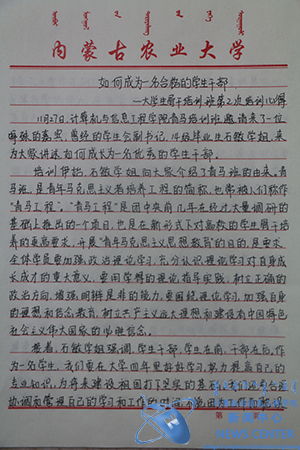 内蒙古农业大学
如何成为一名合格的学生干部
—大学生骨干培训班第2次培训心得
10月27日，计算机与信息工程学院青马培训班邀请来了一位
特殊的嘉宾，曾经的学生会副书记，14届毕业生石敏学姐，来
为大家讲述如何成长为一名优秀的学生干部。
培训伊始，石敏学姐向大家介绍了青马班的由来。青
马班，是青年马克思主义者培养工程的简称，也常被人们称作
"青马工程"。"青马工程"是团中央前几年在经过大量调研的
基础上推出的一个项目，也是在新形式下对高校的学生骨干培
养的更高要求，开展"青年马克思主义思想教育"的目的，是要求
全体学员要加强政治理论学习，充分认识理论学习对自身成
长成才的重大意义，要用学得的理论指导实践，树立正确的
政治方向，增强明辨是非的能力，要围绕理论学习，加强自身
的理想和信念教育，树立共产主义远大理想和建设有中国特色
社会主义伟大国家的必胜信念。
接着，石敏学姐强调，学生干部，学生在前，干部在后，作
为一名学生，我们要在大学四年里好好学习，努力提高自己的
专业知识，为将来建设祖国打下坚实的基本
协调和掌握自己的学习和工作的时间
新闻中心
NEWS CENTER